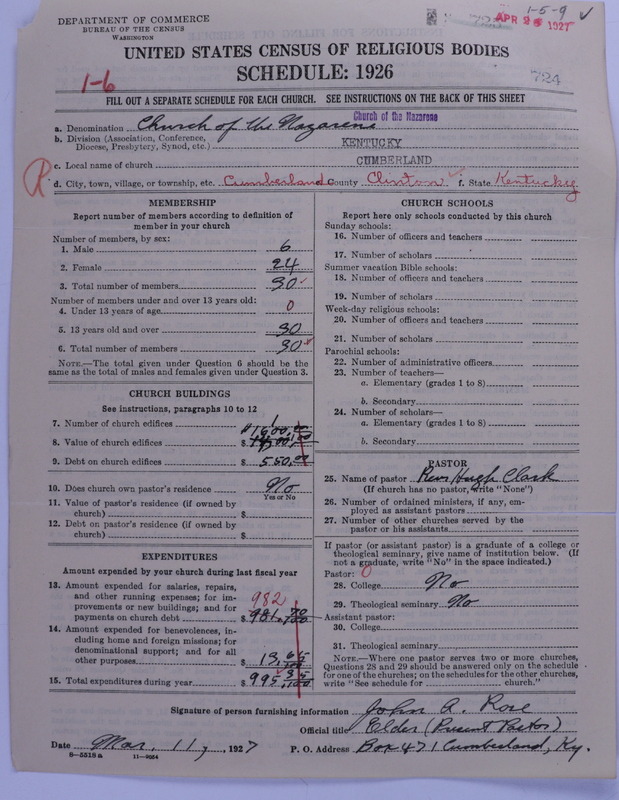 1-5-9 ✓
DEPARTMENT OF COMMERCE
BUREAU OF THE CENSUS
WASHINGTON
APR 25 1927
UNITED STATES CENSUS OF RELIGIOUS BODIES
SCHEDULE: 1926
1-6
724
FILL OUT A SEPARATE SCHEDULE FOR EACH CHURCH. SEE INSTRUCTIONS ON THE BACK OF THIS SHEET
Church of the Nazarene
a. Denomination Church of the Nazarene
b. Division (Association, Conference, Diocese, Presbytery, Synod, etc.) KENTUCKY
c. Local name of church CUMBERLAND
R
d. City, town, village, or township, etc. Cumberland County Clinton f. State Kentucky
MEMBERSHIP
Report number of members according to definition of
member in your church
Number of members, by sex:
1. Male 6
2. Female 24
3. Total number of members 30
Number of members under and over 13 years old:
4. Under 13 years of age 0
5. 13 years old and over 30
6. Total number of members 30
NOTE.—The total given under Question 6 should be the
same as the total of males and females given under Question 3.
CHURCH BUILDINGS
See instructions, paragraphs 10 to 12
7. Number of church edifices 1
8. Value of church edifices $
9. Debt on church edifices $ 550.00
10. Does church own pastor's residence No
Yes or No
11. Value of pastor's residence (if owned by
church) $
12. Debt on pastor's residence (if owned by
church) $
EXPENDITURES
Amount expended by your church during last fiscal year
13. Amount expended for salaries, repairs,
and other running expenses; for im-
provements or new buildings; and for 982
payments on church debt $ 981.70/100
14. Amount expended for benevolences, in-
cluding home and foreign missions; for
denominational support; and for all
other purposes $ 13.65/100
15. Total expenditures during year $ 995.35/100
CHURCH SCHOOLS
Report here only schools conducted by this church
Sunday schools:
16. Number of officers and teachers
17. Number of scholars
Summer vacation Bible schools:
18. Number of officers and teachers
19. Number of scholars
Week-day religious schools:
20. Number of officers and teachers
21. Number of scholars
Parochial schools:
22. Number of administrative officers
23. Number of teachers—
a. Elementary (grades 1 to 8)
b. Secondary
24. Number of scholars—
a. Elementary (grades 1 to 8)
b. Secondary
PASTOR
25. Name of pastor Rev. Hugh Clark
(If church has no pastor, write "None")
26. Number of ordained ministers, if any, em-
ployed as assistant pastors
27. Number of other churches served by the
pastor or his assistants
If pastor (or assistant pastor) is a graduate of a college or
theological seminary, give name of institution below. (If
not a graduate, write "No" in the space indicated.)
Pastor: 0
28. College No
29. Theological seminary No
Assistant pastor:
30. College
31. Theological seminary
NOTE.—Where one pastor serves two or more churches,
Questions 28 and 29 should be answered only on the schedule
for one of the churches; on the schedules for the other churches,
write "See schedule for church."
Signature of person furnishing information John A. Rose
Official title Elder (Present Pastor)
Date Mar. 11, 1927 P. O. Address Box 471 Cumberland, Ky.
8—5518 a 11—9064